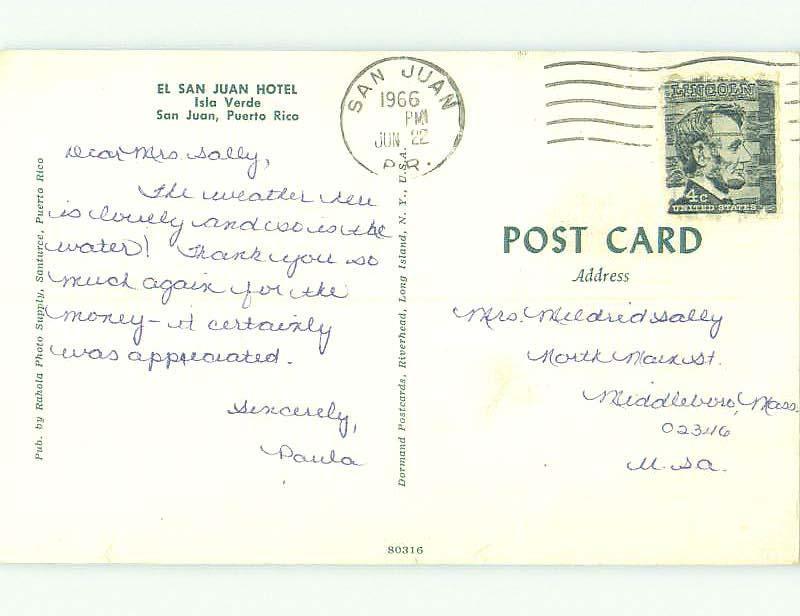 EL SAN JUAN HOTEL
Isla Verde
San Juan, Puerto Rico
SAN JUAN
1966
PM
JUN 22
P.R.
LINCOLN
4c
UNITED STATES
Dear Mrs. Sally,
The weather here
is lovely and so is the
water! Thank you so
much again for the
money - it certainly
was appreciated.
Sincerely,
Paula
Pub. by Rahola Photo Supply, Santurce, Puerto Rico
Dormand Postcards, Riverhead, Long Island, N. Y., U.S.A.
POST CARD
Address
Mrs. Mildred Sally
North Main St.
Middleboro, Mass.
02346
U.S.A.
80316